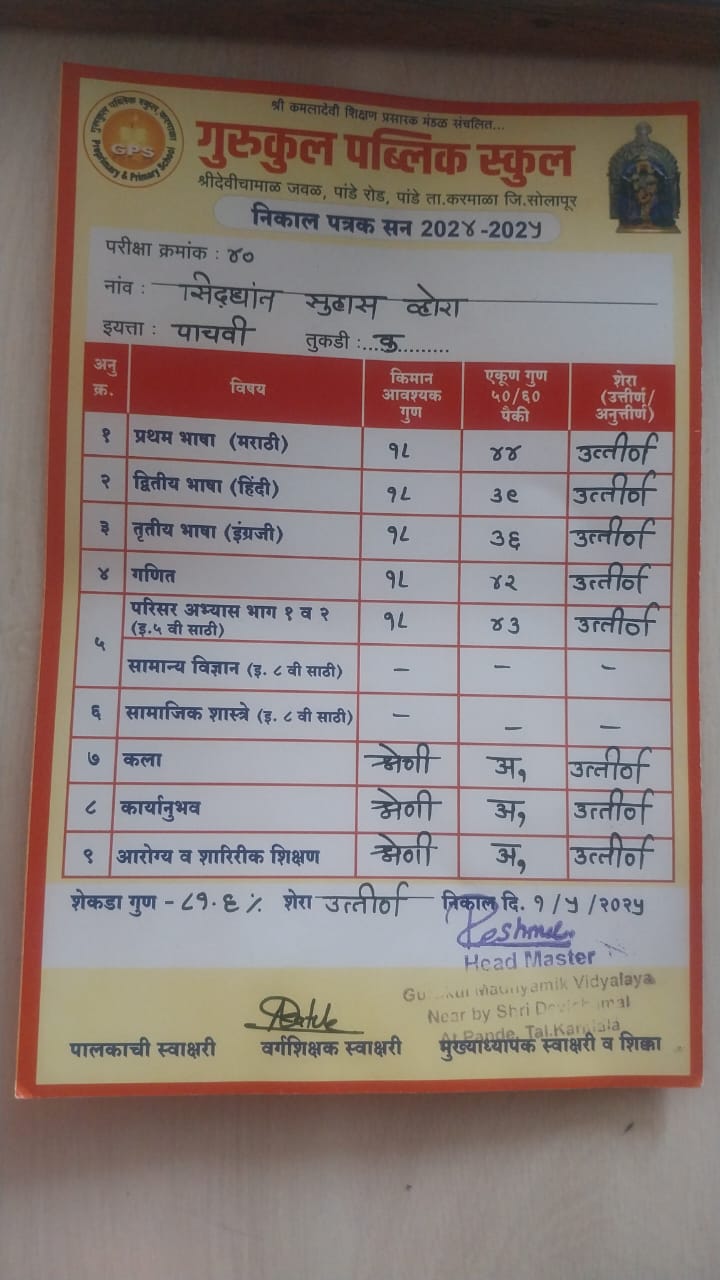 श्री कमलादेवी शिक्षण प्रसारक मंडळ संचलित...
गुरुकुल पब्लिक स्कुल, करमाळा
GPS
Preprimary & Primary School
गुरुकुल पब्लिक स्कुल
श्रीदेवीचामाळ जवळ, पांडे रोड, पांडे ता.करमाळा जि.सोलापूर
निकाल पत्रक सन 202४-202५
परीक्षा क्रमांक : ४०
नांव : सिद्धांत सुहास व्होरा
इयत्ता : पाचवी तुकडी :...कु..........
अनु क्र. विषय किमान आवश्यक गुण एकूण गुण ५०/६० पैकी शेरा (उत्तीर्ण/ अनुत्तीर्ण)
१ प्रथम भाषा (मराठी) १८ ४४ उत्तीर्ण
२ द्वितीय भाषा (हिंदी) १८ ३९ उत्तीर्ण
३ तृतीय भाषा (इंग्रजी) १८ ३६ उत्तीर्ण
४ गणित १८ ४२ उत्तीर्ण
५ परिसर अभ्यास भाग १ व २ (इ.५ वी साठी) १८ ४३ उत्तीर्ण
सामान्य विज्ञान (इ. ८ वी साठी) – – –
६ सामाजिक शास्त्रे (इ. ८ वी साठी) – – –
७ कला श्रेणी अ, उत्तीर्ण
८ कार्यानुभव श्रेणी अ, उत्तीर्ण
९ आरोग्य व शारिरीक शिक्षण श्रेणी अ, उत्तीर्ण
शेकडा गुण - ८१.६% शेरा उत्तीर्ण निकाल दि. १/५/२०२५
Head Master
Madhyamik Vidyalaya
Near by Shri
At Pande, Tal.Karmala
पालकाची स्वाक्षरी वर्गशिक्षक स्वाक्षरी मुख्याध्यापक स्वाक्षरी व शिक्का